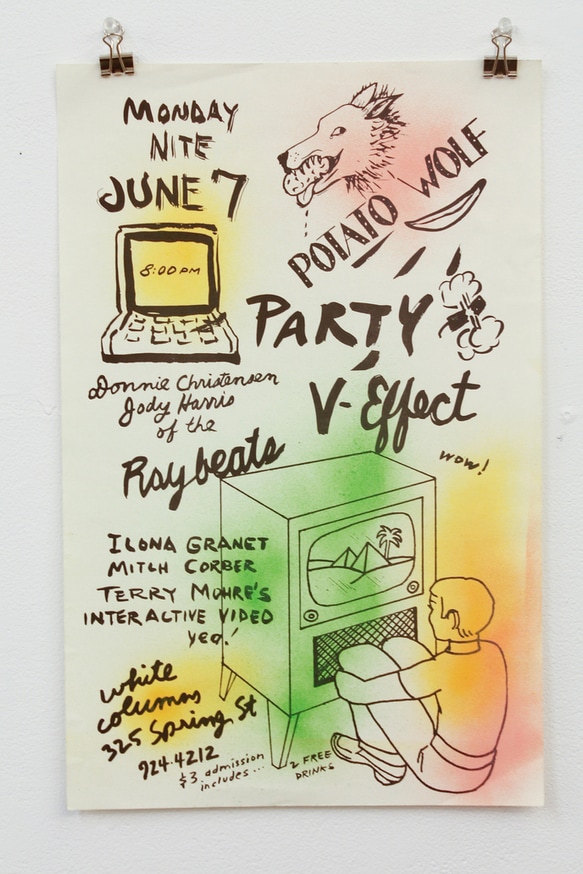 MONDAY
NITE
JUNE 7
8:00 PM
POTATO WOLF
PARTY
V-Effect
Donnie Christensen
Jody Harris
of the
Raybeats
wow!
ILONA GRANET
MITCH CORBER
TERRY MOHRE'S
INTERACTIVE VIDEO
yea!
white
columns
325 Spring St
924-4212
$3 admission
includes...
2 FREE
DRINKS